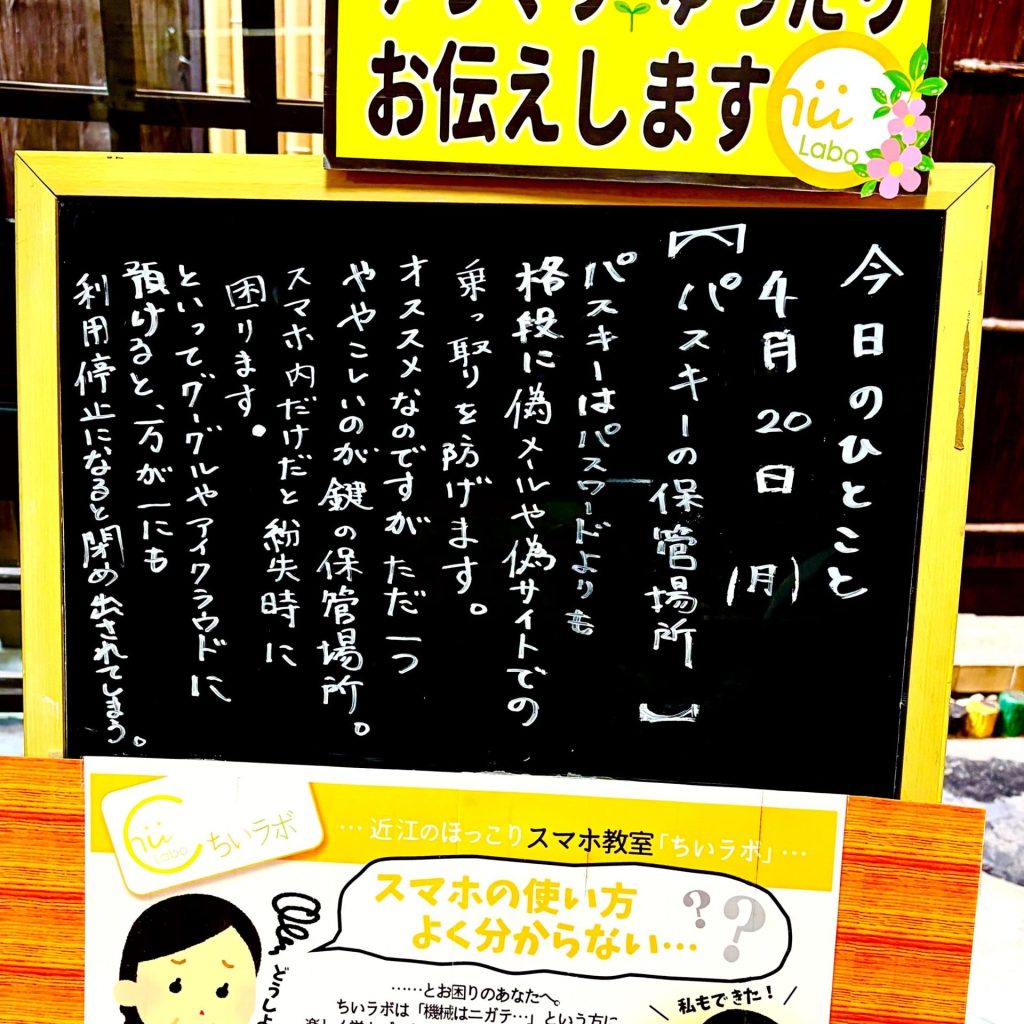 お伝えします
hii
Labo
今日のひとこと
4月20日(月)
【パスキーの保管場所】
パスキーはパスワードよりも
格段に偽メールや偽サイトでの
乗っ取りを防げます。
オススメなのですが ただ一つ
ややこしいのが鍵の保管場所。
スマホ内だけだと紛失時に
困ります。
といってグーグルやアイクラウドに
預けると、万が一にも
利用停止になると閉め出されてしまう。
Chii
Labo
ちいラボ
…近江のほっこりスマホ教室「ちいラボ」…
スマホの使い方
よく分からない…
??
どうしよ
……とお困りのあなたへ。
ちいラボは「機械はニガテ…」という方に
私もできた!